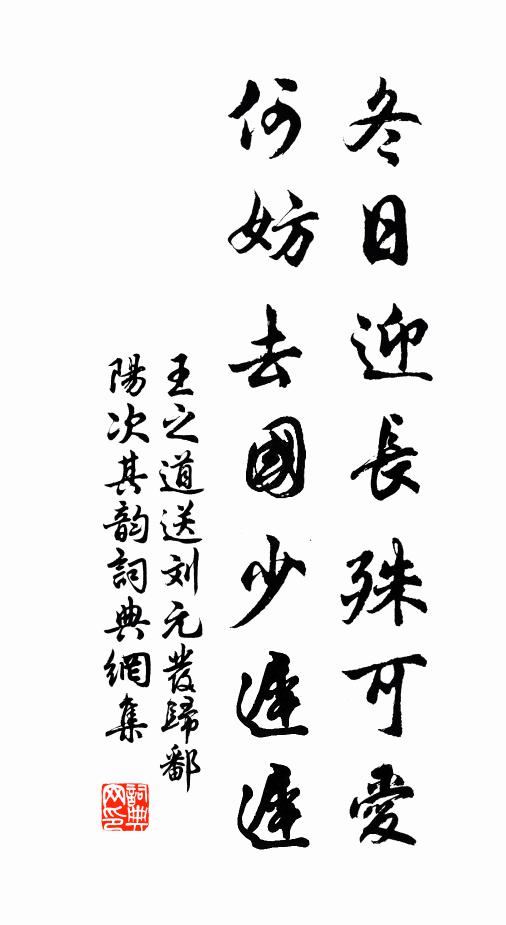 冬日迎長殊可愛
何妨去國少遲遲
王之道送刘元發歸鄱
陽次其韵詞典網集
詞典网印